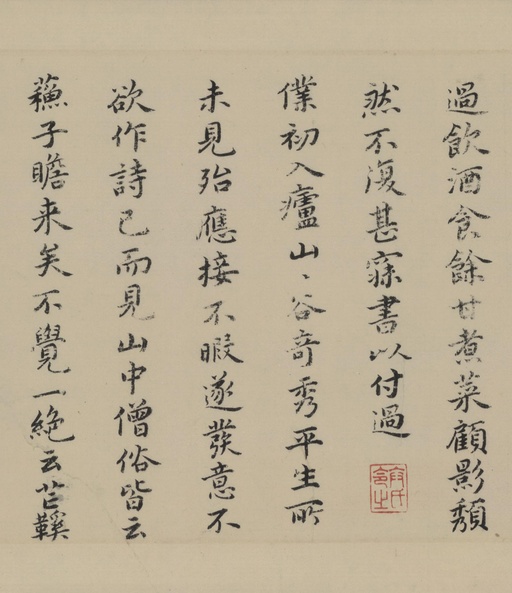 過飲酒食餘甘煮菜顧影頹
然不復甚寐書以付過
僕初入廬山山谷奇秀平生所
未見殆應接不暇遂發意不
欲作詩已而見山中僧俗皆云
蘓子瞻来矣不覺一絶云芒鞵